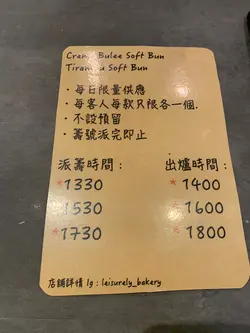 Creme Bulee Soft Bun
Tiramisu Soft Bun
· 每日限量供應
· 每客人每款只限各一個.
· 不設預留
· 籌號派完即止
派籌時間: 出爐時間:
*1330 *1400
*1530 *1600
*1730 *1800
店舖詳情 Ig: leisurely_bakery